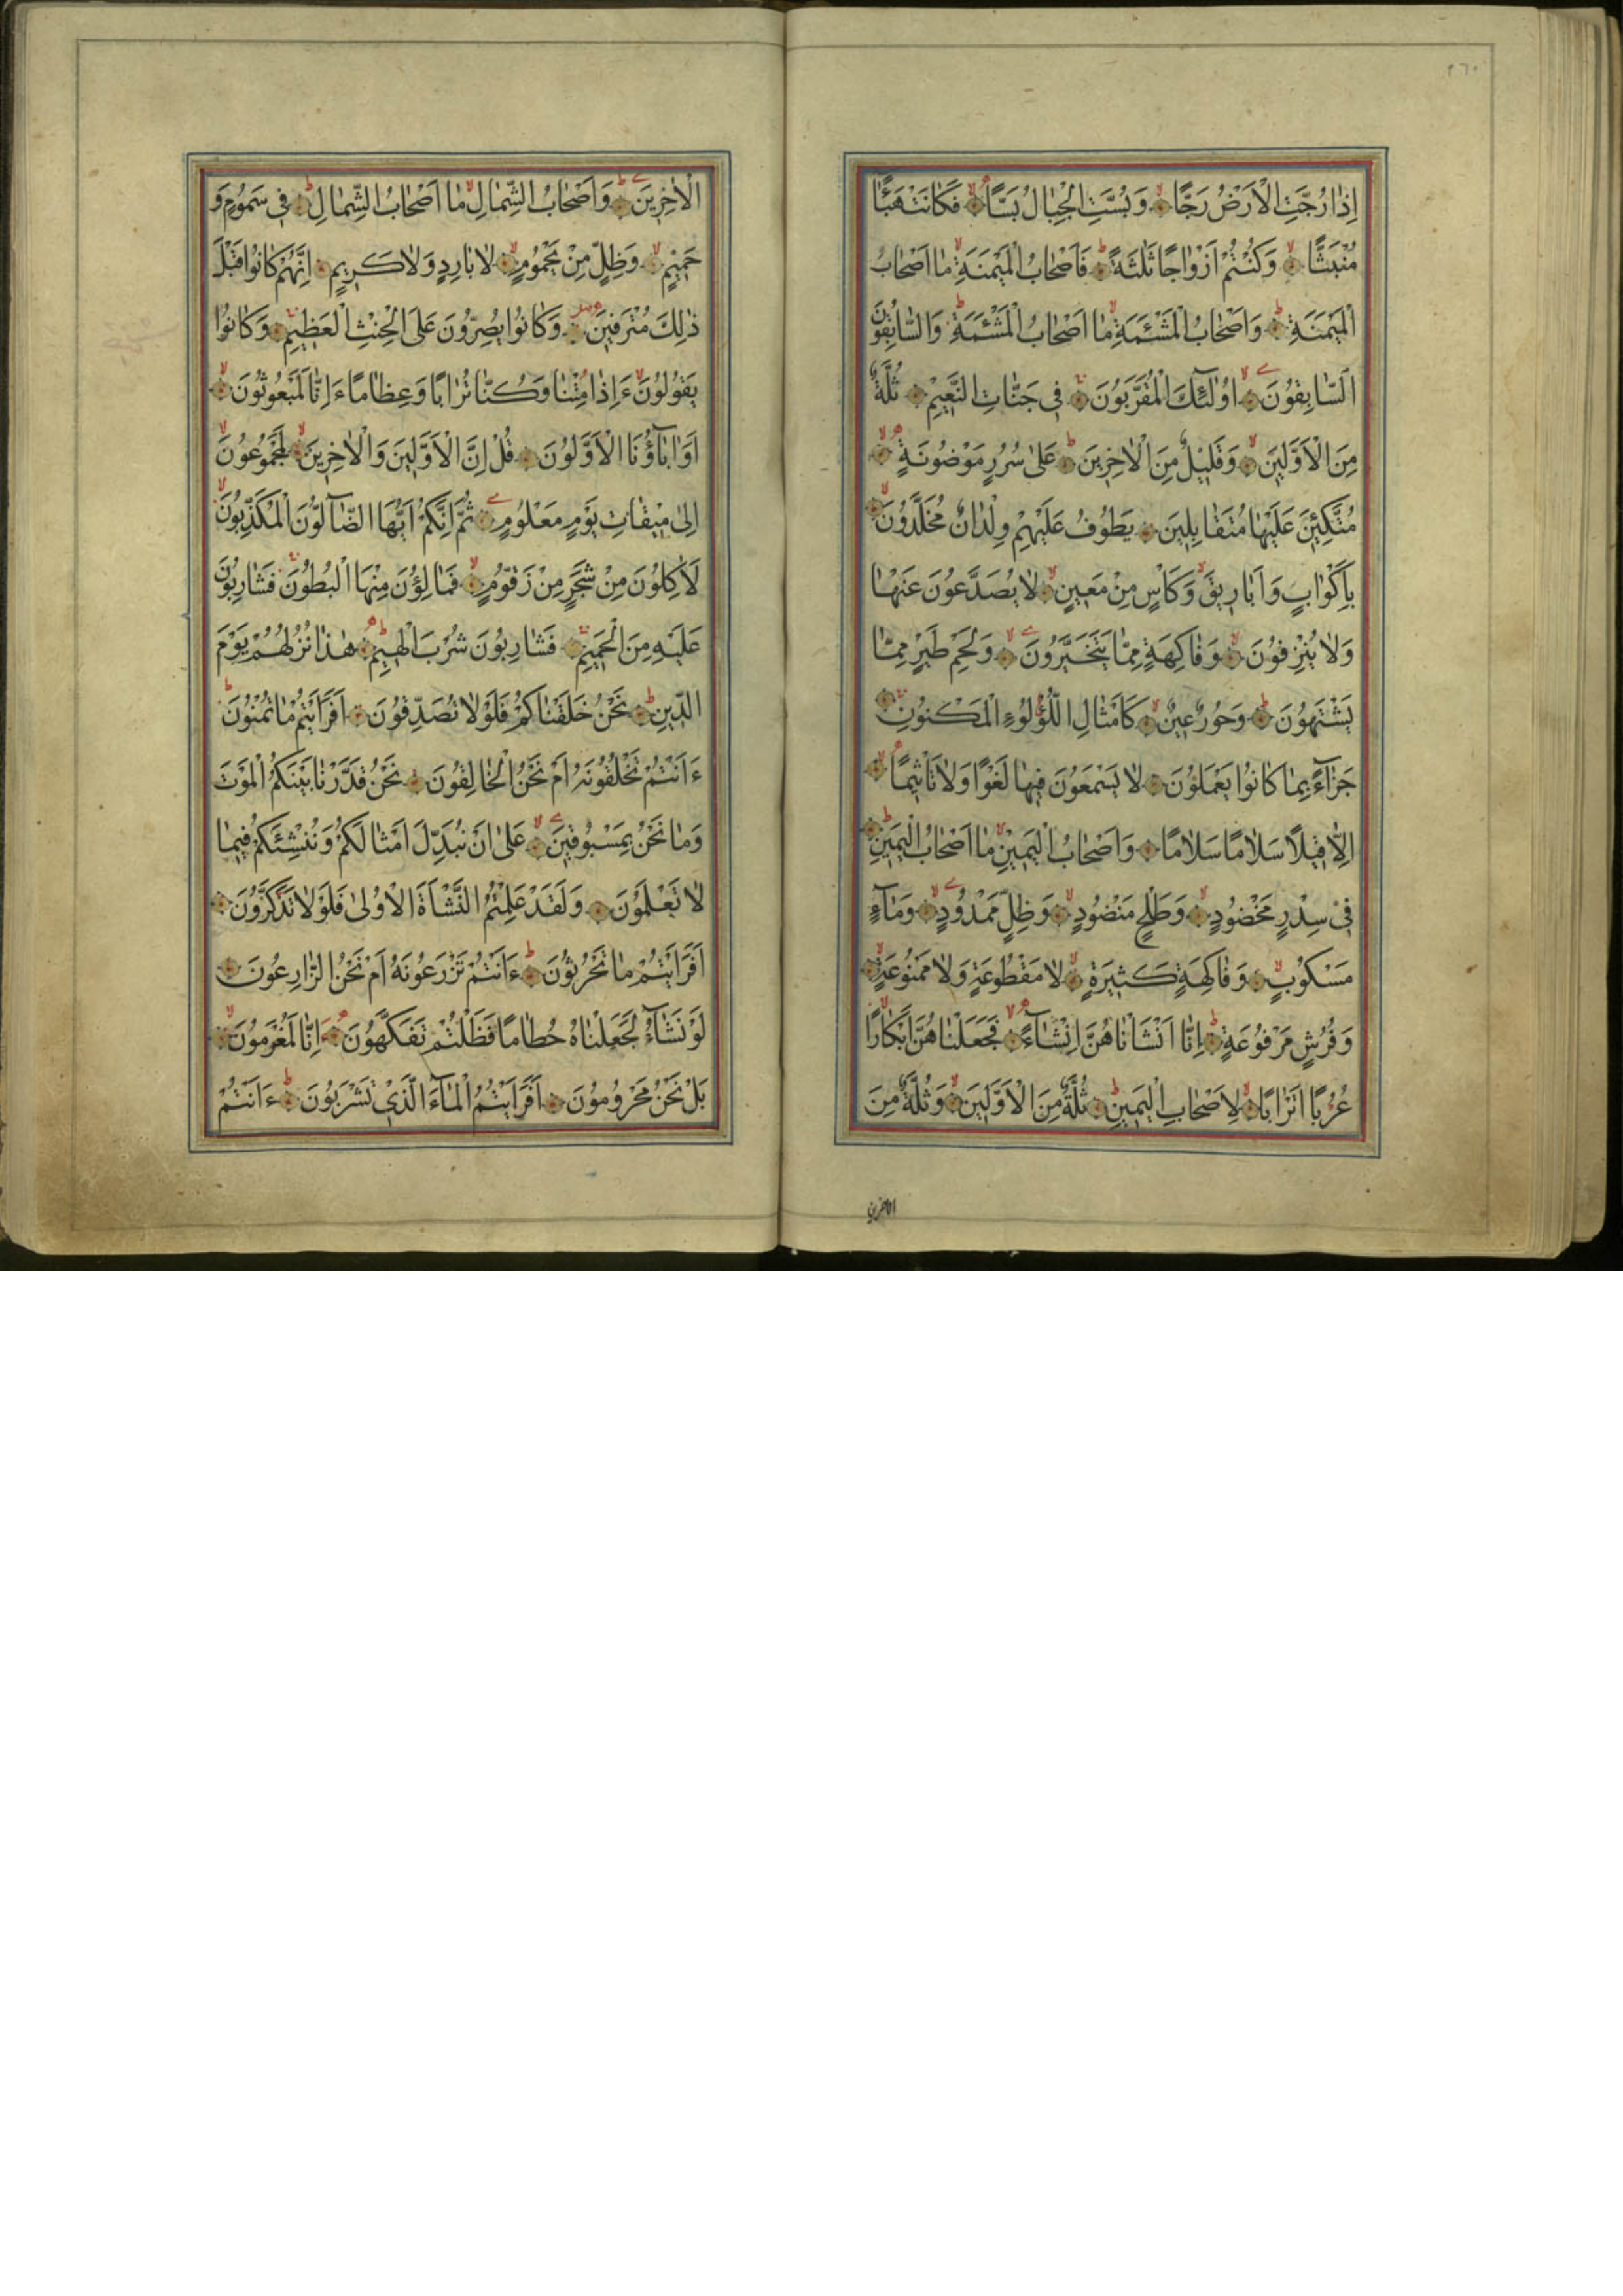 ٢٦٠
اِذَا رُجَّتِ الْاَرْضُ رَجًّا وَبُسَّتِ الْجِبَالُ بَسًّا فَكَانَتْ هَبَٓاءً
مُنْبَثًّا وَكُنْتُمْ اَزْوَاجًا ثَلٰثَةً فَاَصْحَابُ الْمَيْمَنَةِ مَا اَصْحَابُ
الْمَيْمَنَةِ وَاَصْحَابُ الْمَشْئَمَةِ مَا اَصْحَابُ الْمَشْئَمَةِ وَالسَّابِقُونَ
السَّابِقُونَ اُولٰٓئِكَ الْمُقَرَّبُونَ فِى جَنَّاتِ النَّعِيمِ ثُلَّةٌ
مِنَ الْاَوَّلِينَ وَقَلِيلٌ مِنَ الْاٰخِرِينَ عَلٰى سُرُرٍ مَوْضُونَةٍ
مُتَّكِئِينَ عَلَيْهَا مُتَقَابِلِينَ يَطُوفُ عَلَيْهِمْ وِلْدَانٌ مُخَلَّدُونَ
بِاَكْوَابٍ وَاَبَارِيقَ وَكَاْسٍ مِنْ مَعِينٍ لَا يُصَدَّعُونَ عَنْهَا
وَلَا يُنْزِفُونَ وَفَاكِهَةٍ مِمَّا يَتَخَيَّرُونَ وَلَحْمِ طَيْرٍ مِمَّا
يَشْتَهُونَ وَحُورٌ عِينٌ كَاَمْثَالِ اللُّؤْلُوءِ الْمَكْنُونِ
جَزَٓاءً بِمَا كَانُوا يَعْمَلُونَ لَا يَسْمَعُونَ فِيهَا لَغْوًا وَلَا تَاْثِيمًا
اِلَّا قِيلًا سَلَامًا سَلَامًا وَاَصْحَابُ الْيَمِينِ مَا اَصْحَابُ الْيَمِينِ
فِى سِدْرٍ مَخْضُودٍ وَطَلْحٍ مَنْضُودٍ وَظِلٍّ مَمْدُودٍ وَمَٓاءٍ
مَسْكُوبٍ وَفَاكِهَةٍ كَثِيرَةٍ لَا مَقْطُوعَةٍ وَلَا مَمْنُوعَةٍ
وَفُرُشٍ مَرْفُوعَةٍ اِنَّا اَنْشَاْنَاهُنَّ اِنْشَٓاءً فَجَعَلْنَاهُنَّ اَبْكَارًا
عُرُبًا اَتْرَابًا لِاَصْحَابِ الْيَمِينِ ثُلَّةٌ مِنَ الْاَوَّلِينَ وَثُلَّةٌ مِنَ
الاخرين
الْاٰخِرِينَ وَاَصْحَابُ الشِّمَالِ مَا اَصْحَابُ الشِّمَالِ فِى سَمُومٍ وَ
حَمِيمٍ وَظِلٍّ مِنْ يَحْمُومٍ لَا بَارِدٍ وَلَا كَرِيمٍ اِنَّهُمْ كَانُوا قَبْلَ
ذٰلِكَ مُتْرَفِينَ وَكَانُوا يُصِرُّونَ عَلَى الْحِنْثِ الْعَظِيمِ وَكَانُوا
يَقُولُونَ ءَاِذَا مِتْنَا وَكُنَّا تُرَابًا وَعِظَامًا ءَاِنَّا لَمَبْعُوثُونَ
اَوَاٰبَٓاؤُنَا الْاَوَّلُونَ قُلْ اِنَّ الْاَوَّلِينَ وَالْاٰخِرِينَ لَمَجْمُوعُونَ
اِلٰى مِيقَاتِ يَوْمٍ مَعْلُومٍ ثُمَّ اِنَّكُمْ اَيُّهَا الضَّٓالُّونَ الْمُكَذِّبُونَ
لَاٰكِلُونَ مِنْ شَجَرٍ مِنْ زَقُّومٍ فَمَالِؤُنَ مِنْهَا الْبُطُونَ فَشَارِبُونَ
عَلَيْهِ مِنَ الْحَمِيمِ فَشَارِبُونَ شُرْبَ الْهِيمِ هٰذَا نُزُلُهُمْ يَوْمَ
الدِّينِ نَحْنُ خَلَقْنَاكُمْ فَلَوْلَا تُصَدِّقُونَ اَفَرَاَيْتُمْ مَا تُمْنُونَ
ءَاَنْتُمْ تَخْلُقُونَهُ اَمْ نَحْنُ الْخَالِقُونَ نَحْنُ قَدَّرْنَا بَيْنَكُمُ الْمَوْتَ
وَمَا نَحْنُ بِمَسْبُوقِينَ عَلٰى اَنْ نُبَدِّلَ اَمْثَالَكُمْ وَنُنْشِئَكُمْ فِيمَا
لَا تَعْلَمُونَ وَلَقَدْ عَلِمْتُمُ النَّشْاَةَ الْاُولٰى فَلَوْلَا تَذَكَّرُونَ
اَفَرَاَيْتُمْ مَا تَحْرُثُونَ ءَاَنْتُمْ تَزْرَعُونَهُ اَمْ نَحْنُ الزَّارِعُونَ
لَوْ نَشَٓاءُ لَجَعَلْنَاهُ حُطَامًا فَظَلْتُمْ تَفَكَّهُونَ اِنَّا لَمُغْرَمُونَ
بَلْ نَحْنُ مَحْرُومُونَ اَفَرَاَيْتُمُ الْمَٓاءَ الَّذِى تَشْرَبُونَ ءَاَنْتُمْ